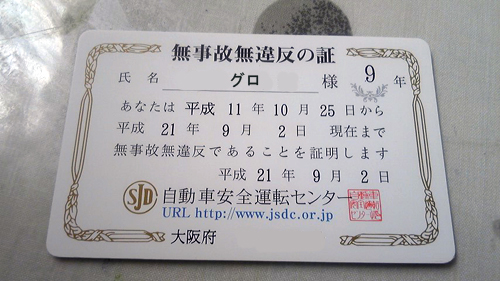 無事故無違反の証
氏名 グロ 様 9年
あなたは 平成 11 年 10 月 25 日から
平成 21 年 9 月 2 日 現在まで
無事故無違反であることを証明します
平成 21 年 9 月 2 日
SJD 自動車安全運転センター
URL http://www.jsdc.or.jp
大阪府